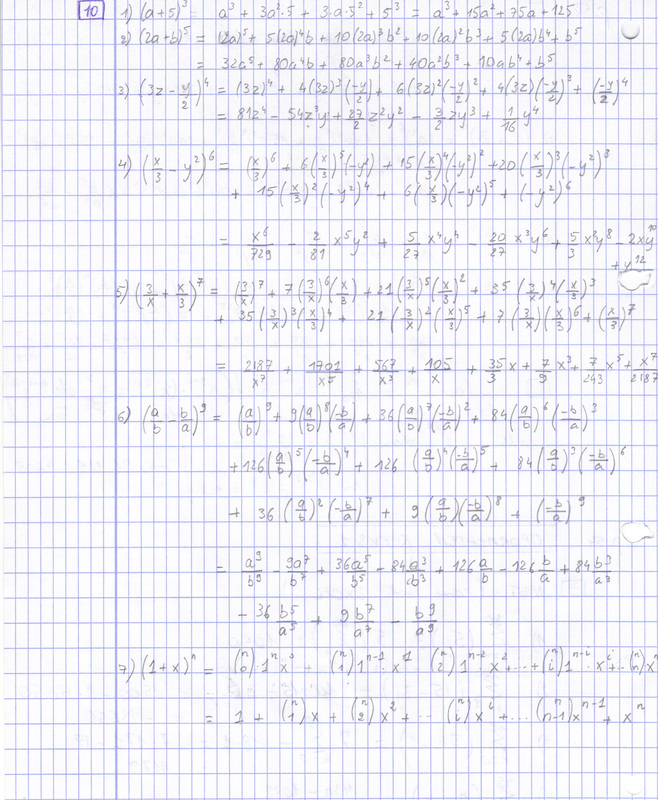 10 1) (a+5)³ = a³ + 3a²·5 + 3·a·5² + 5³ = a³ + 15a² + 75a + 125
2) (2a+b)⁵ = (2a)⁵ + 5(2a)⁴b + 10(2a)³b² + 10(2a)²b³ + 5(2a)b⁴ + b⁵
= 32a⁵ + 80a⁴b + 80a³b² + 40a²b³ + 10ab⁴ + b⁵
3) (3z - y/2)⁴ = (3z)⁴ + 4(3z)³(-y/2) + 6(3z)²(-y/2)² + 4(3z)(-y/2)³ + (-y/2)⁴
= 81z⁴ - 54z³y + 27/2 z²y² - 3/2 zy³ + 1/16 y⁴
4) (x/3 - y²)⁶ = (x/3)⁶ + 6(x/3)⁵(-y²) + 15(x/3)⁴(-y²)² + 20(x/3)³(-y²)³
+ 15(x/3)²(-y²)⁴ + 6(x/3)(-y²)⁵ + (-y²)⁶
= x⁶/729 - 2/81 x⁵y² + 5/27 x⁴y⁴ - 20/27 x³y⁶ + 5/3 x²y⁸ - 2xy¹⁰
+ y¹²
5) (3/x + x/3)⁷ = (3/x)⁷ + 7(3/x)⁶(x/3) + 21(3/x)⁵(x/3)² + 35(3/x)⁴(x/3)³
+ 35(3/x)³(x/3)⁴ + 21(3/x)²(x/3)⁵ + 7(3/x)(x/3)⁶ + (x/3)⁷
= 2187/x⁷ + 1701/x⁵ + 567/x³ + 105/x + 35/3 x + 7/9 x³ + 7/243 x⁵ + x⁷/2187
6) (a/b - b/a)⁹ = (a/b)⁹ + 9(a/b)⁸(-b/a) + 36(a/b)⁷(-b/a)² + 84(a/b)⁶(-b/a)³
+ 126(a/b)⁵(-b/a)⁴ + 126 (a/b)⁴(-b/a)⁵ + 84(a/b)³(-b/a)⁶
+ 36(a/b)²(-b/a)⁷ + 9(a/b)(-b/a)⁸ + (-b/a)⁹
= a⁹/b⁹ - 9a⁷/b⁷ + 36a⁵/b⁵ - 84a³/b³ + 126a/b - 126 b/a + 84b³/a³
- 36 b⁵/a⁵ + 9b⁷/a⁷ - b⁹/a⁹
7) (1+x)ⁿ = (n 0)·1ⁿx⁰ + (n 1)1ⁿ⁻¹·x¹ (n 2)1ⁿ⁻²·x² + ··· + (n i)1ⁿ⁻ⁱ·xⁱ + ··(n n)xⁿ
= 1 + (n 1)x + (n 2)x² + ·· (n i)xⁱ + ··· (n n-1)xⁿ⁻¹ + xⁿ